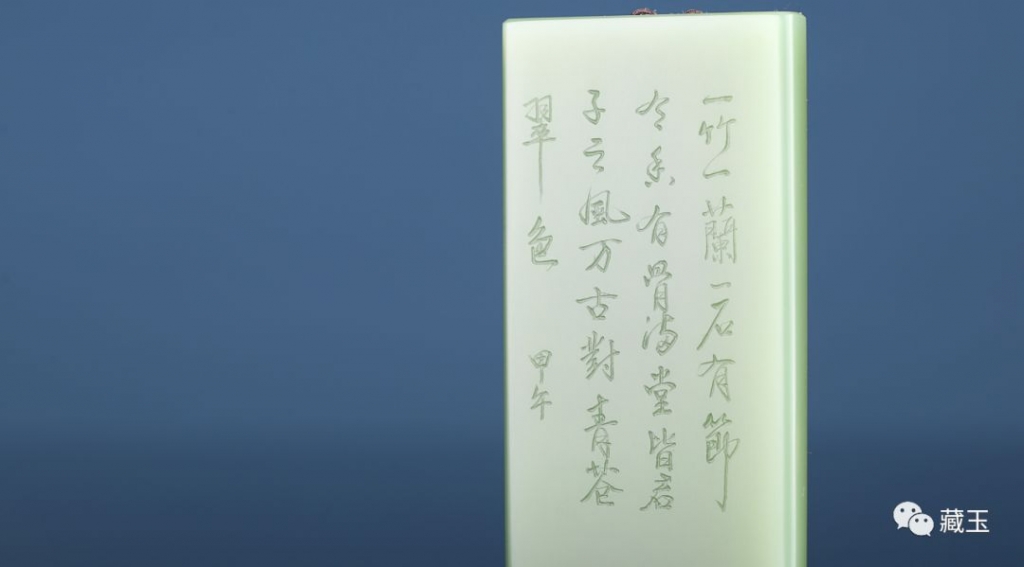 一竹一蘭一石有節
香有骨满堂皆君
子之風万古對青苍
翠色 甲午
藏玉